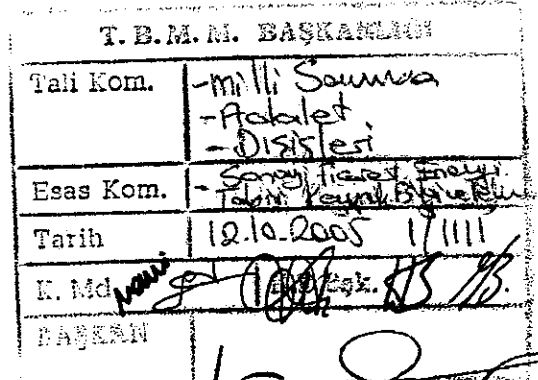 T.B.M.M. BAŞKANLIĞI
Tali Kom. -Milli Savunma
-Adalet
-Dışişleri
Esas Kom. - Sanayi Ticaret Enerji
Tabii Kaynk. Bilgi ve Tekn
Tarih 12.10.2005 1/1111
K. Md.
BAŞKAN